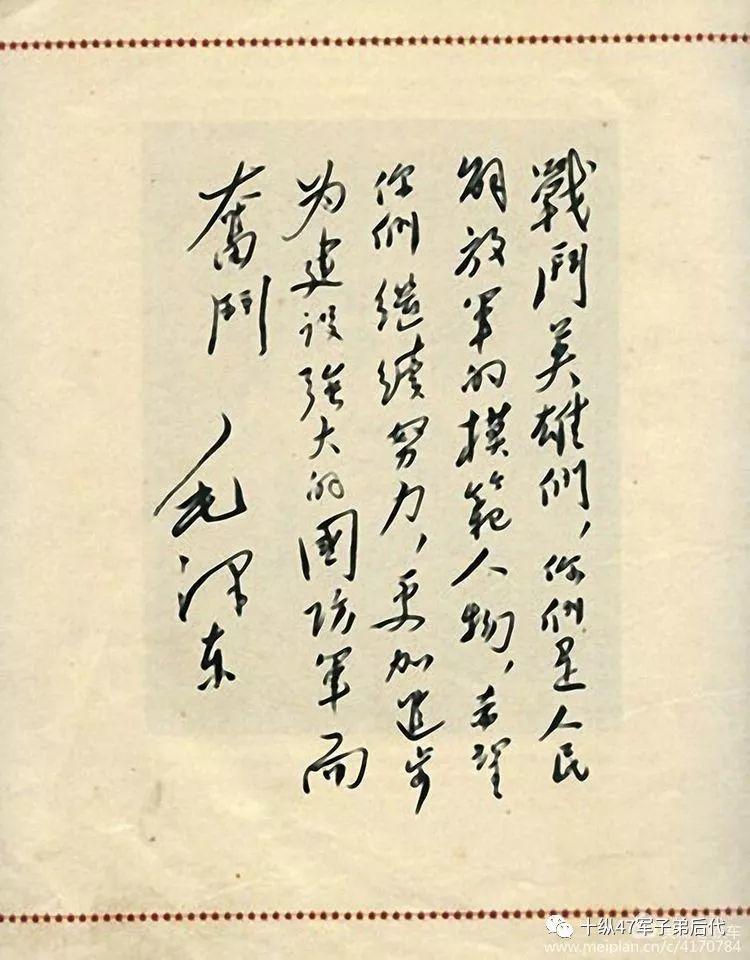 戰鬥英雄們，你們是人民
解放軍的模範人物，希望
你們继续努力，更加進步
为建设強大的國防军而
奮鬥
毛澤东
十纵47军子弟后代
车
www.meipian.cn/c/4170784